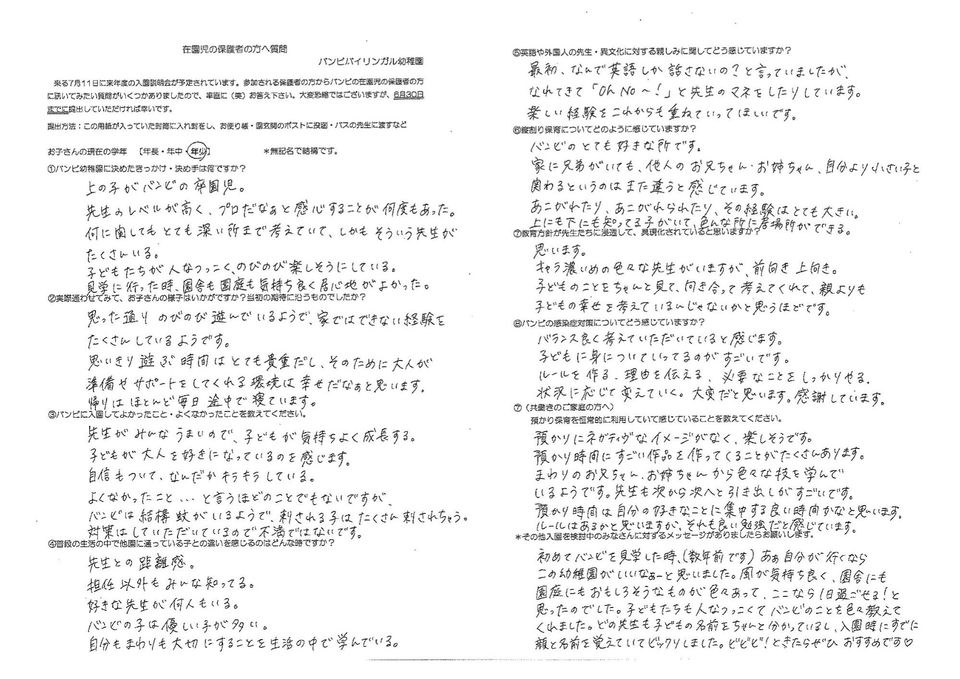 在園児の保護者の方へ質問
バンビバイリンガル幼稚園
来る7月11日に来年度の入園説明会が予定されています。参加される保護者の方からバンビの在園児の保護者の方
に訊いてみたい質問がいくつかありましたので、率直に（笑）お答え下さい。大変恐縮ではございますが、6月30日
までに提出していただければ幸いです。
提出方法：この用紙が入っていた封筒に入れ封をし、お便り帳・園玄関のポストに投函・バスの先生に渡すなど
お子さんの現在の学年 【年長・年中・年少】 *無記名で結構です。
①バンビ幼稚園に決めたきっかけ・決め手は何ですか？
上の子がバンビの卒園児。
先生のレベルが高く、プロだなぁと感心することが何度もあった。
何に関してもとても深い所まで考えていて、しかもそういう先生が
たくさんいる。
子どもたちが人なつっこく、のびのび楽しそうにしている。
見学に行った時、園舎も園庭も気持ち良く居心地がよかった。
②実際通わせてみて、お子さんの様子はいかがですか？当初の期待に沿うものでしたか？
思った通りのびのび遊んでいるようで、家ではできない経験を
たくさんしているようです。
思いきり遊ぶ時間はとても貴重だし、そのために大人が
準備やサポートをしてくれる環境は幸せだなぁと思います。
帰りはほとんど毎日途中で寝ています。
③バンビに入園してよかったこと・よくなかったことを教えてください。
先生がみんなうまいので、子どもが気持ちよく成長する。
子どもが大人を好きになっているのを感じます。
自信もついて、なんだかキラキラしている。
よくなかったこと...と言うほどのことでもないですが、
バンビは結構蚊がいるようで、刺される子はたくさん刺されちゃう。
対策はしていただいているので不満ではないです。
④普段の生活の中で他園に通っている子との違いを感じるのはどんな時ですか？
先生との距離感。
担任以外もみんな知ってる。
好きな先生が何人もいる。
バンビの子は優しい子が多い。
自分もまわりも大切にすることを生活の中で学んでいる。
⑤英語や外国人の先生・異文化に対する親しみに関してどう感じていますか？
最初、なんで英語しか話さないの？と言っていましたが、
なれてきて「Oh No～！」と先生のマネをしたりしています。
楽しい経験をこれからも重ねていってほしいです。
⑥縦割り保育についてどのように感じていますか？
バンビのとても好きな所です。
家に兄弟がいても、他人のお兄ちゃん・お姉ちゃん、自分より小さい子と
関わるというのはまた違うと感じています。
あこがれたり、あこがれられたり、その経験はとても大きい。
上にも下にも知ってる子がいて、色んな所に居場所ができる。
⑦教育方針が先生たちに浸透して、具現化されていると思いますか？
思います。
キャラ濃いめの色々な先生がいますが、前向き上向き。
子どものことをちゃんと見て、向き合って考えてくれて、親よりも
子どもの幸せを考えているんじゃないかと思うほどです。
⑧バンビの感染症対策についてどう感じていますか？
バランス良く考えていただいていると感じます。
子どもに身についていってるのがすごいです。
ルールを作る、理由を伝える、必要なことをしっかりやる、
状況に応じて変えていく。大変だと思います。感謝しています。
⑦（共働きのご家庭の方へ）
預かり保育を恒常的に利用していて感じていることを教えてください。
預かりにネガティヴなイメージがなく、楽しそうです。
預かり時間にすごい作品を作ってくることがたくさんあります。
まわりのお兄ちゃん、お姉ちゃんから色々な技を学んで
いるようです。先生も次から次へと引き出しがすごいです。
預かり時間は自分の好きなことに集中する良い時間かなと思います。
ルールはあるかと思いますが、それも良い勉強だと感じています。
*その他入園を検討中のみなさんに対するメッセージがありましたらお願いします。
初めてバンビを見学した時、（数年前です）あぁ自分が行くなら
この幼稚園がいいなぁーと思いました。風が気持ち良く、園舎にも
園庭にもおもしろそうなものが色々あって、ここなら1日過ごせる！と
思ったのでした。子どもたちも人なつっこくてバンビのことを色々教えて
くれました。どの先生も子どもの名前をちゃんと分かっているし、入園時にすでに
顔と名前を覚えていてビックリしました。ビビビ！ときたらぜひおすすめです♡